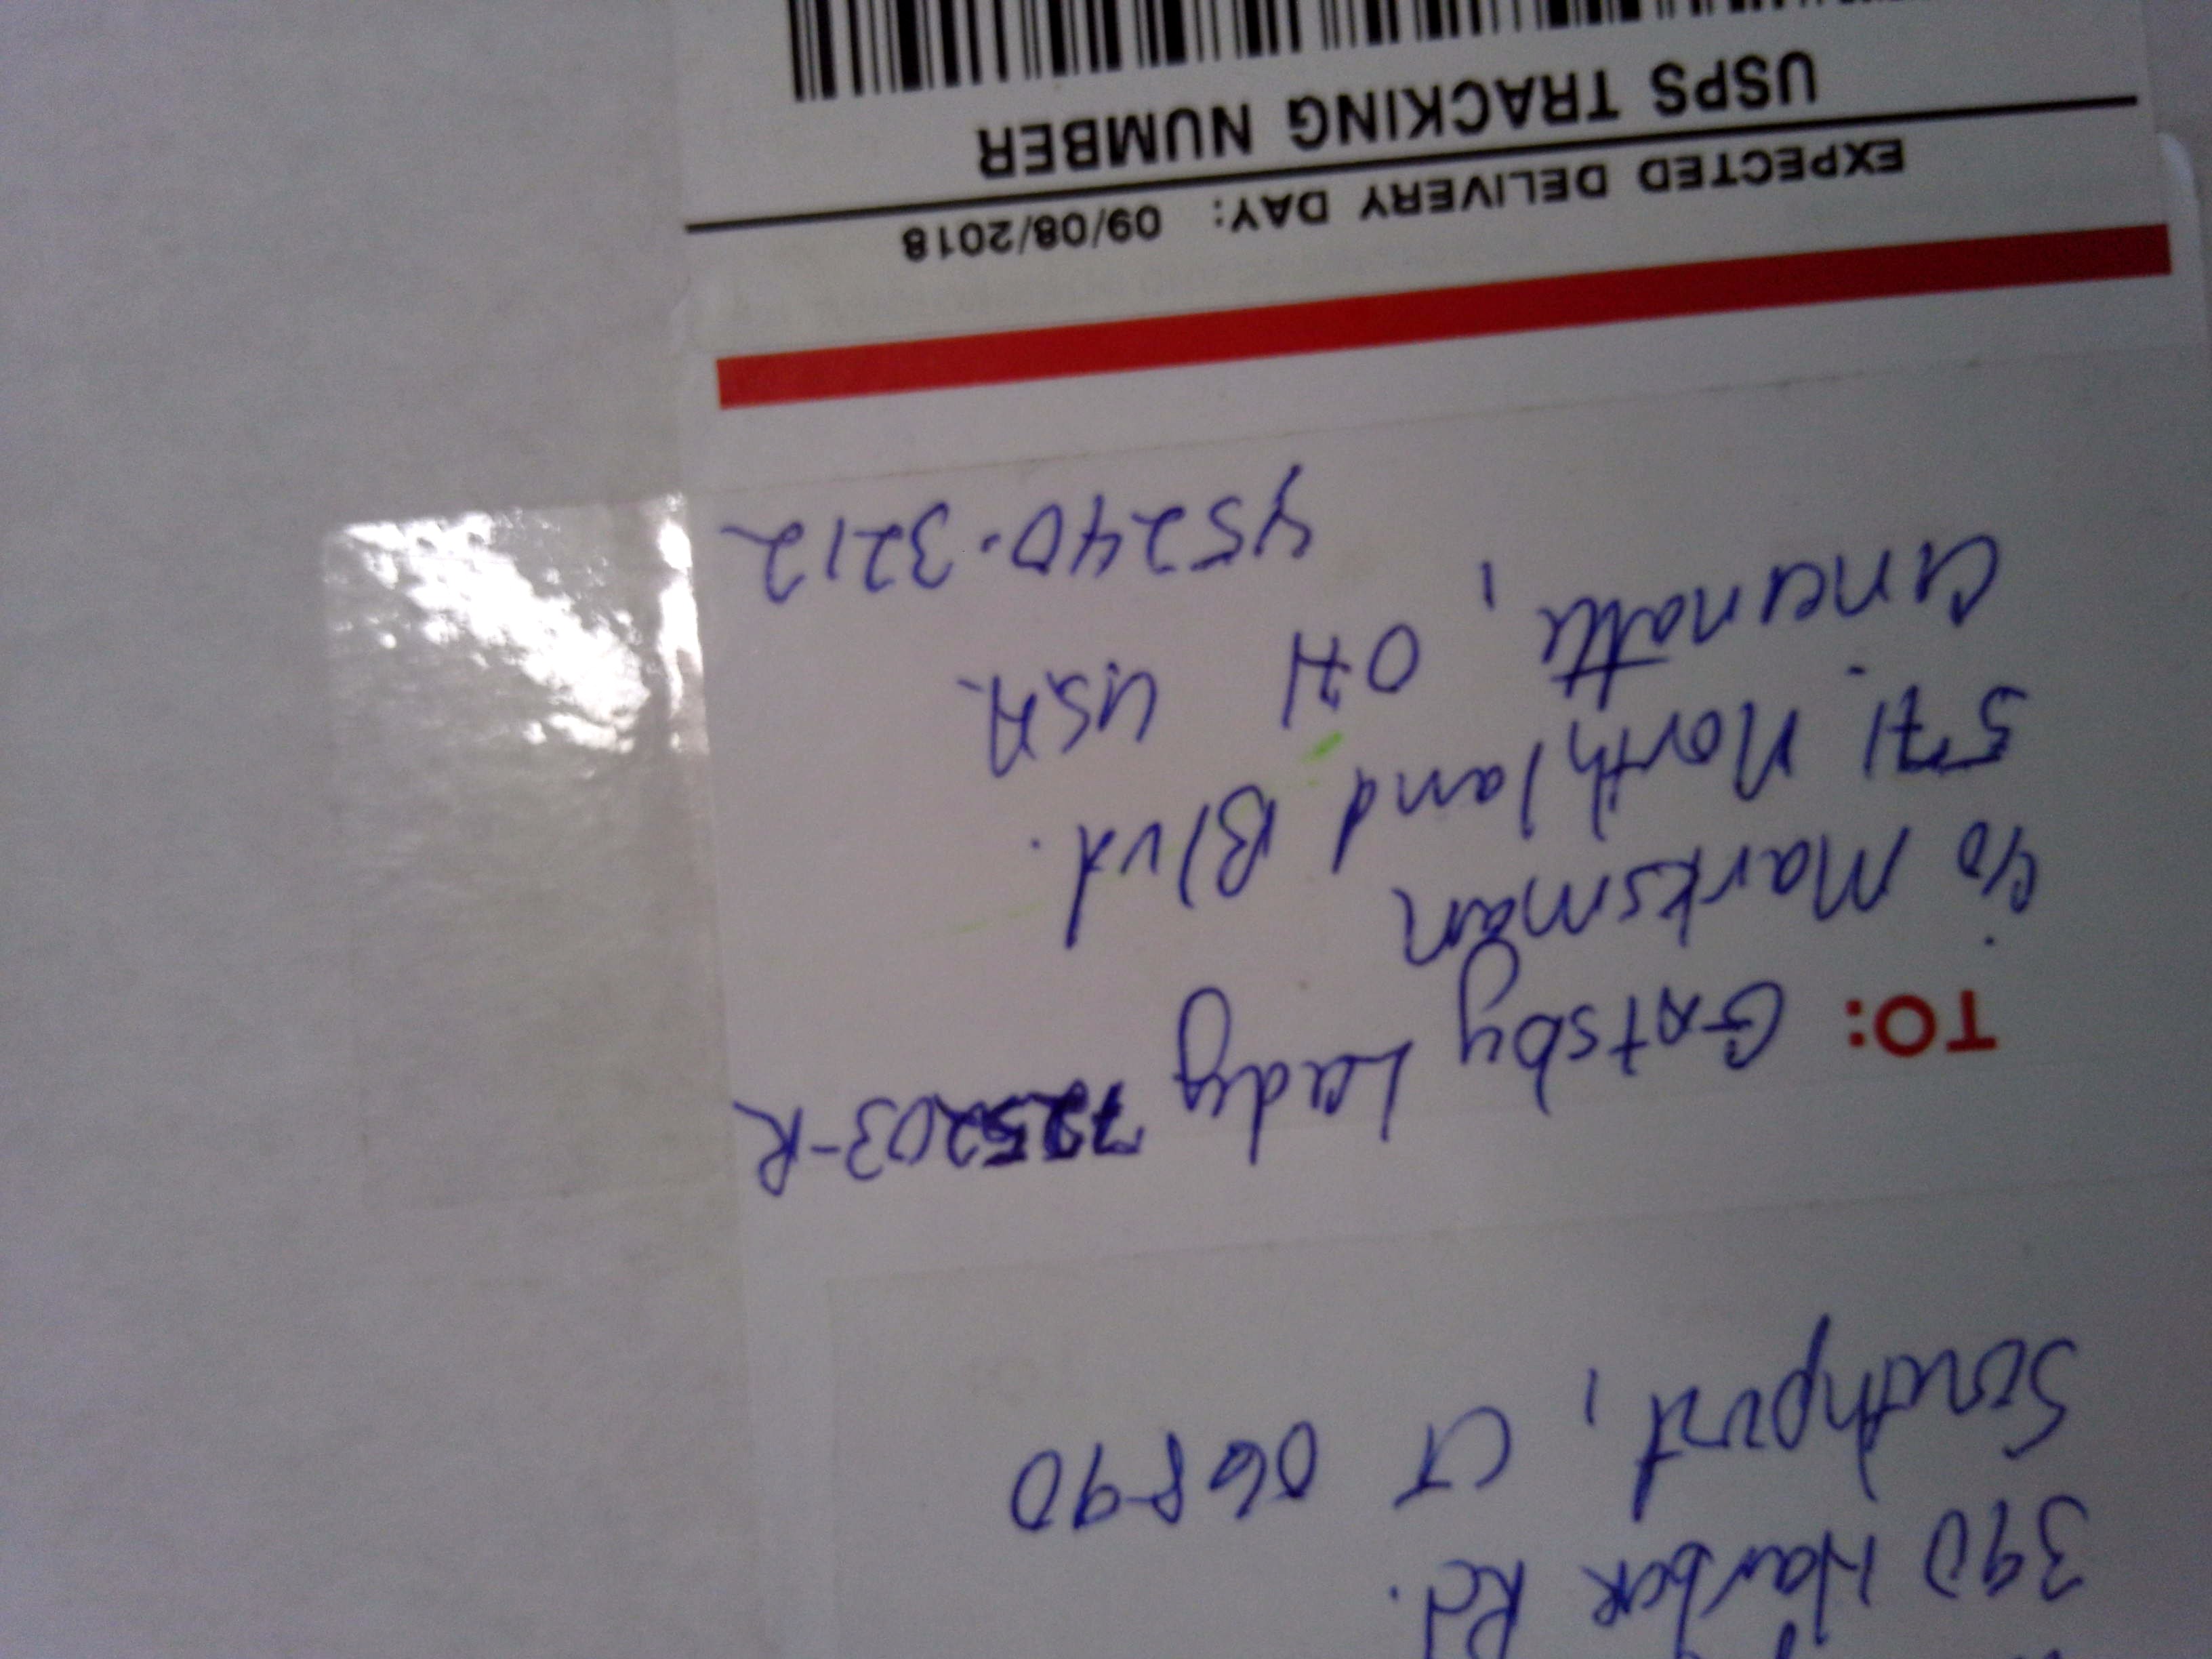 390 Harbor Rd.
Southport, CT 06890
TO: Gatsby Lady 725203-R
c/o Marksman
571 Northland Blvd.
Cincinnati, OH USA
45240-3212
EXPECTED DELIVERY DAY: 09/08/2018
USPS TRACKING NUMBER